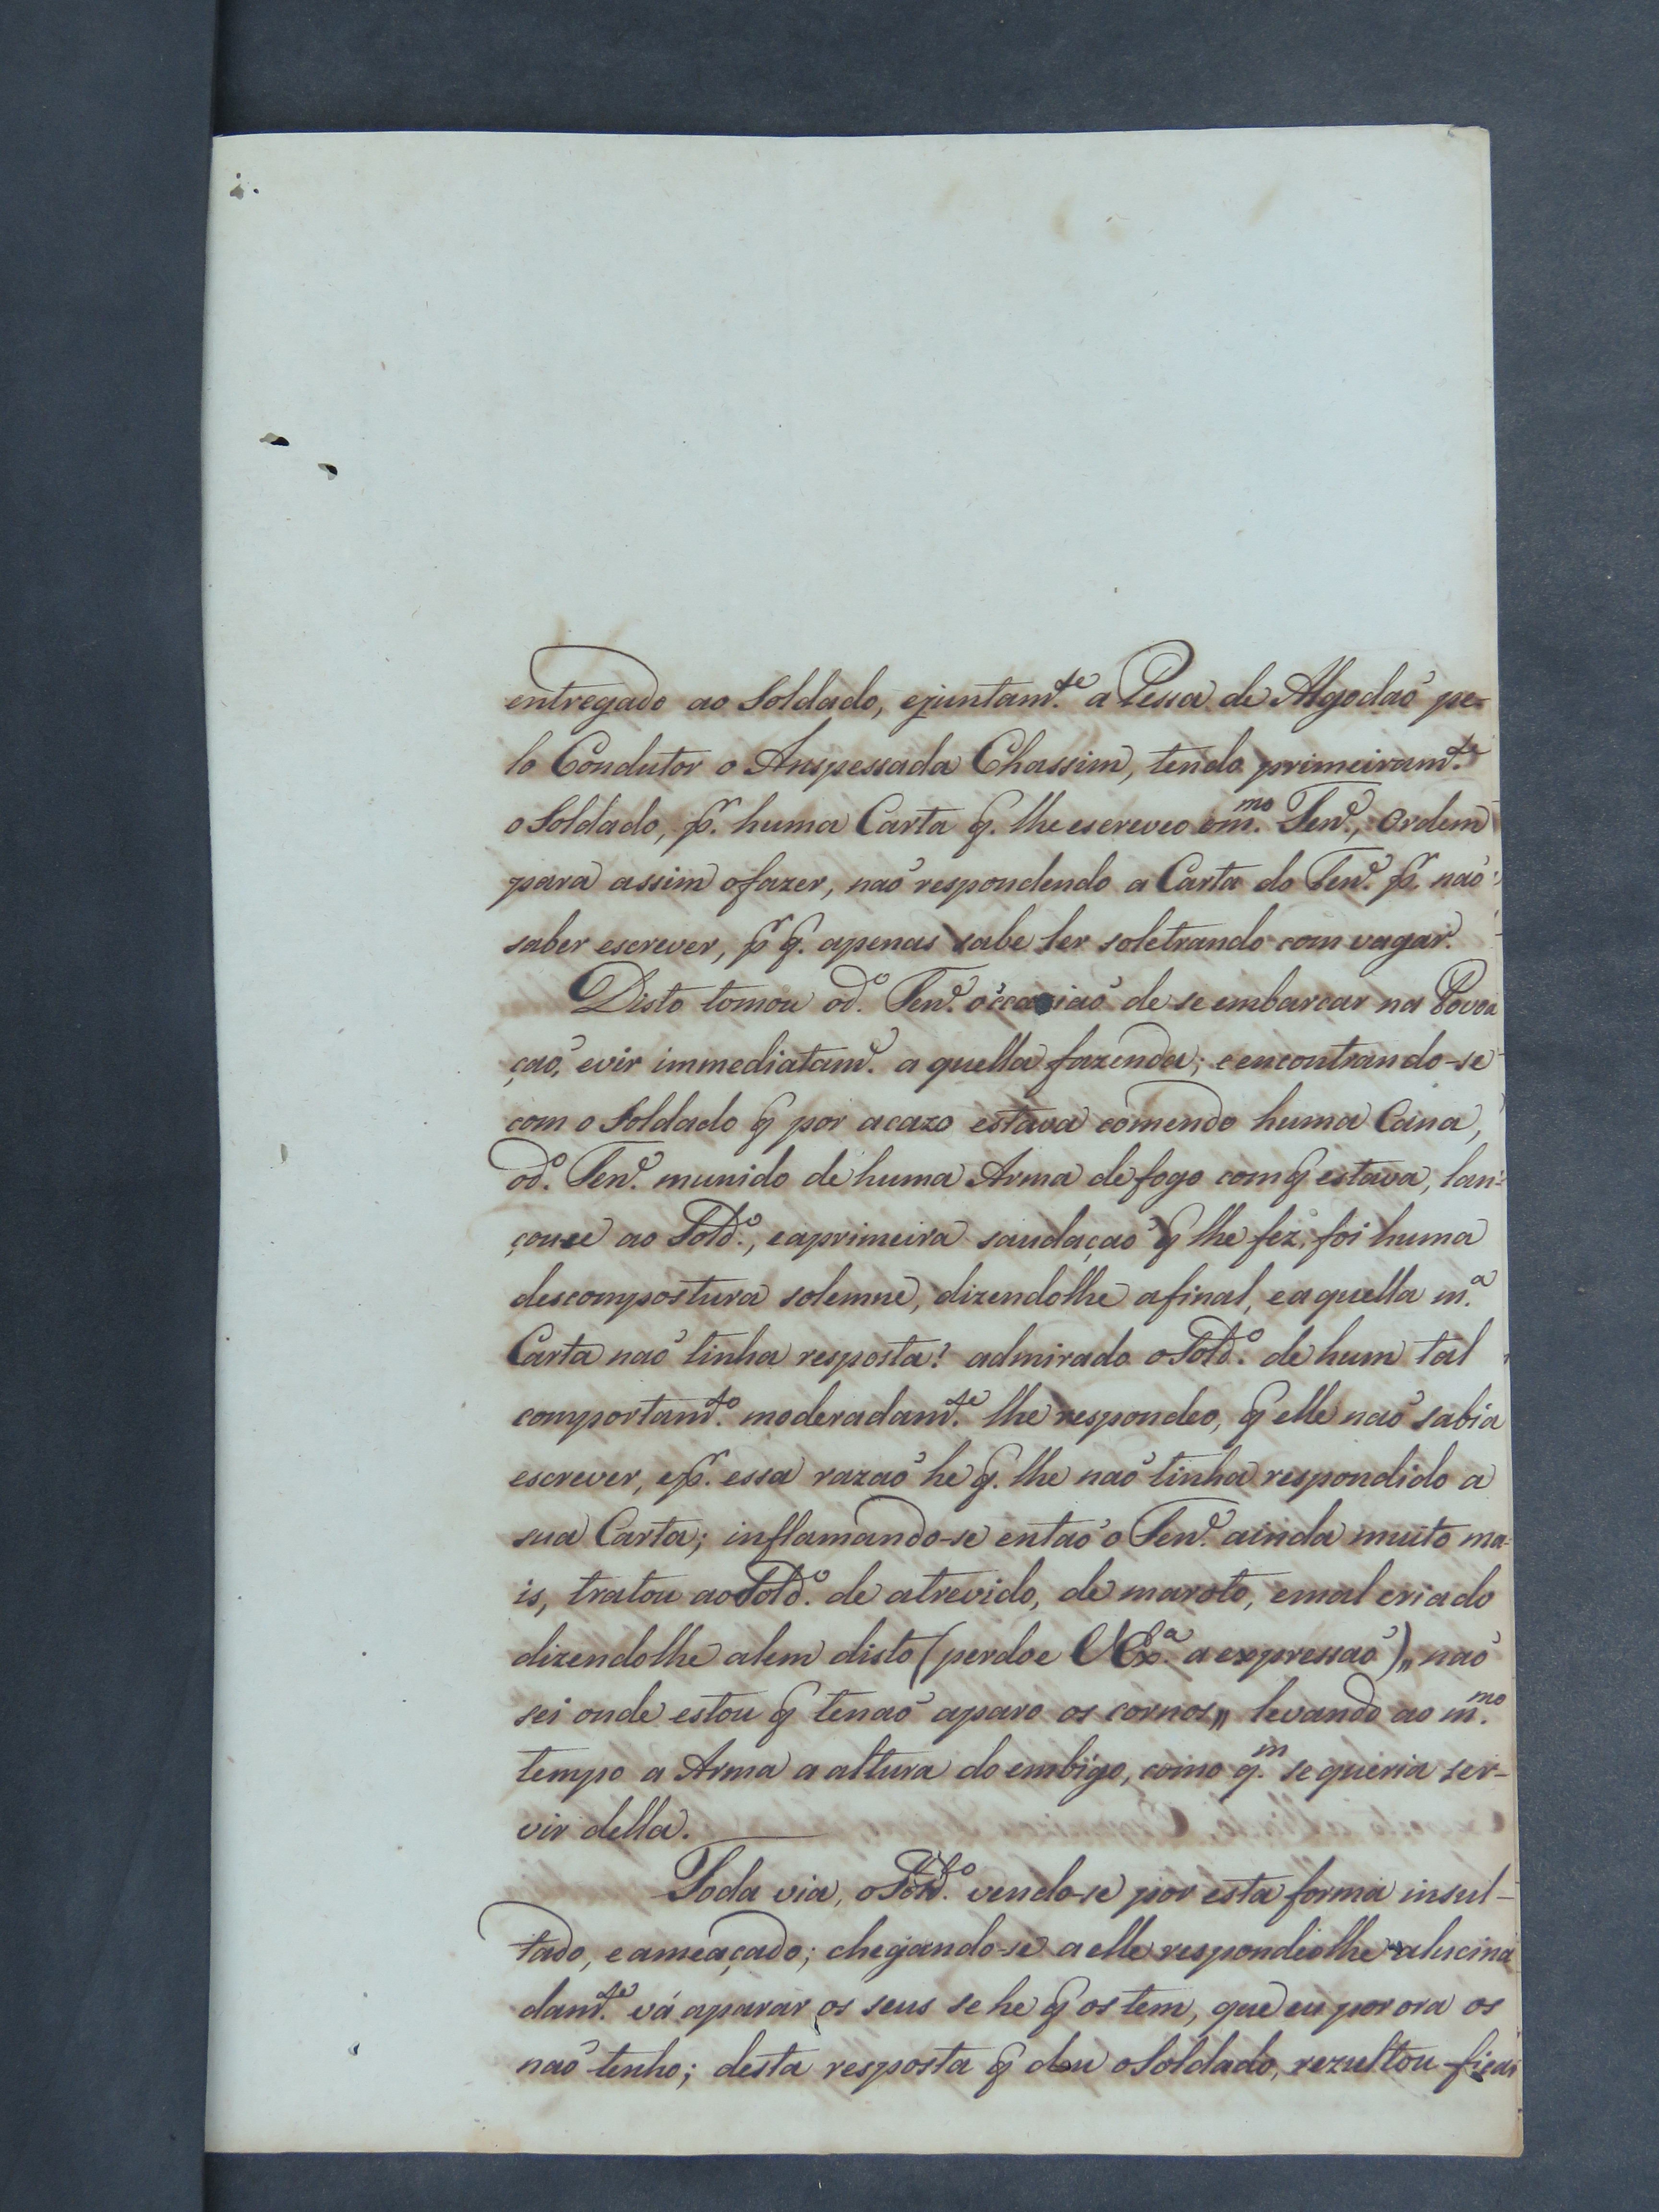 entregado ao Soldado, ejuntam.te a Pessa de Algodaõ pe-
lo Condutor o Anspessada Chassim, tendo primeiram.te
o Soldado, p.r huma Carta q. lhe escreveo o m.mo Ten.e, Ordem
para assim ofazer, naõ respondendo a Carta do Ten.e p.r naõ
saber escrever, p.r q. apenas sabe ler soletrando com vagar.
Disto tomou od.o Ten.e occasiaõ de se embarcar na Povoa
çaõ, evir immediatam.e a quella fazenda; e encontrando-se
com o Soldado q por acazo estava comendo huma Cana,
od.o Ten.e munido de huma Arma de fogo com q estava, lan-
çouse ao Sold.o, eaprimeira saudaçaõ q lhe fez, foi huma
descompostura solemne, dizendolhe afinal, eaquella m.a
Carta naõ tinha resposta? admirado o Sold.o de hum tal
comportam.to moderadam.te lhe respondeo, q elle naõ sabia
escrever, ep.r essa razaõ he q. lhe naõ tinha respondido a
sua Carta; inflamando-se entaõ o Ten.e ainda muito ma-
is, tratou ao Sold.o de atrevido, de maroto, emal criado
dizendolhe alem disto (perdoe V Ex.a a expressaõ) „ naõ
sei onde estou q tenaõ aparo os cornos „ levando ao m.mo
tempo a Arma a altura do embigo, como q.m se queria ser-
vir della.
Toda via, o Sold.o vendo-se por esta forma insul-
tado, e ameaçado; chegando-se a elle respondeolhe alucina
dam.te vá aparar os seus se he q os tem, que eu por ora os
naõ tenho; desta resposta q deu o Soldado, rezultou ficar